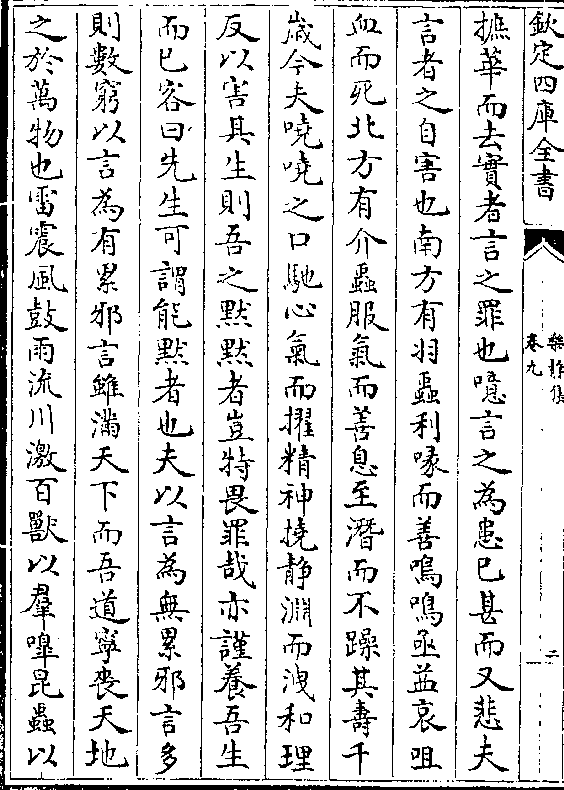 欽定四庫全書
樂靜集
卷九
二
摭華而去實者言之罪也噫言之為患已甚而又悲夫
言者之自害也南方有羽蟲利喙而善鳴鳴亟益哀咀
血而死北方有介蟲服氣而善息至潛而不躁其壽千
嵗今夫嘵嘵之口馳心氣而擢精神撓静淵而洩和理
反以害其生則吾之黙黙者豈特畏罪哉亦謹養吾生
而已客曰先生可謂能黙者也夫以言為無累邪言多
則數窮以言為有累邪言雖滿天下而吾道寧喪天地
之於萬物也雷震風鼓雨流川激百獸以羣嘷昆蟲以